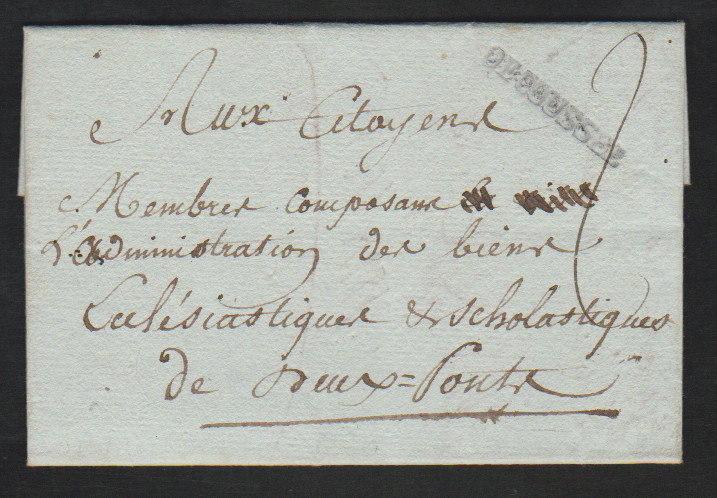 Aux Citoyens
Membres composans
L'administration des biens
Ecclésiastiques & scholastiques
de Deux=Ponts